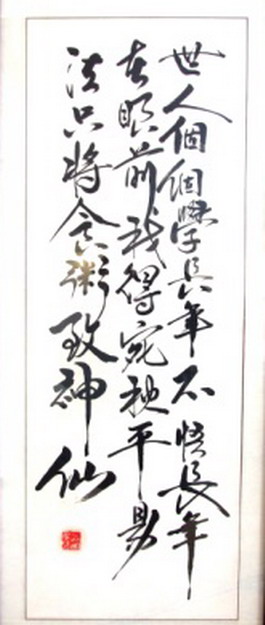 世人個個學長年不悟長年
在眼前我得宛平易
法只將食粥致神仙